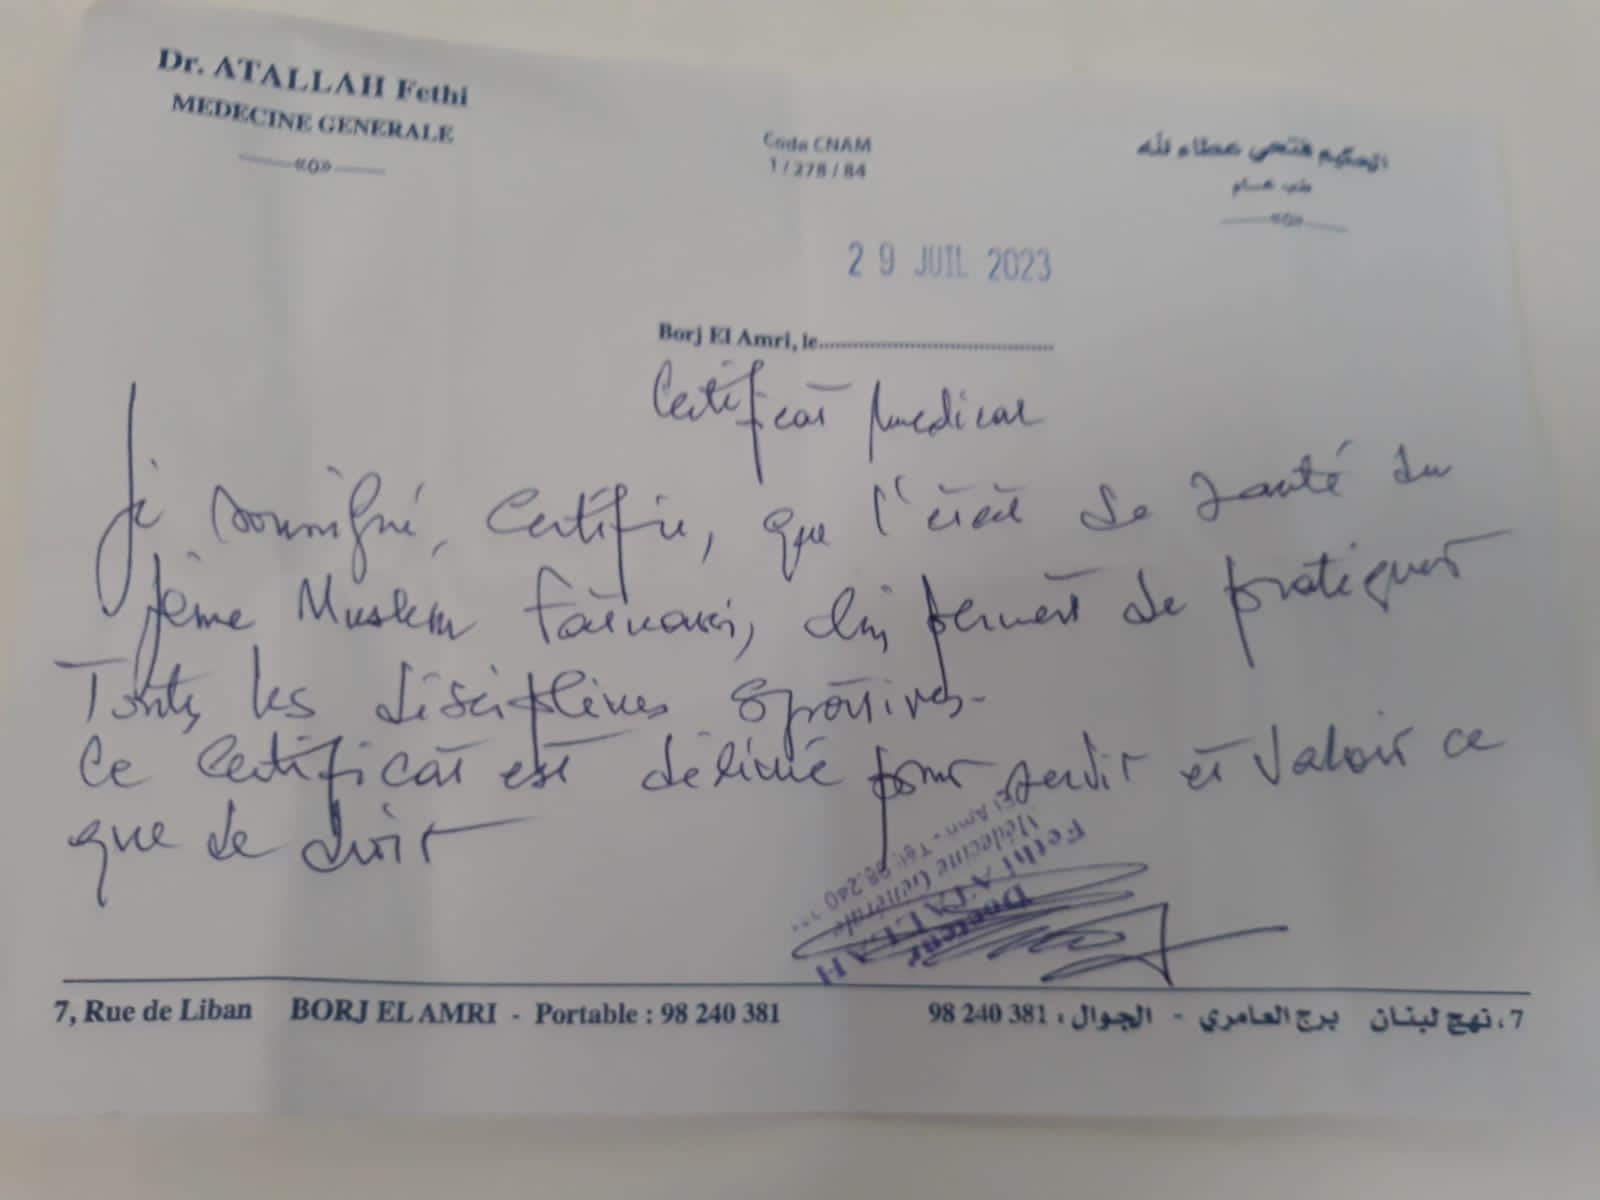 Dr. ATALLAH Fethi
MEDECINE GENERALE
«o»
Code CNAM
1 / 278 / 84
الحكيم فتحي عطاء لله
طب عام
«o»
29 JUIL 2023
Borj El Amri, le
Certificat Medical
Je soussigné, Certifie, que l'état de santé du
Jeune Muslem, lui permet de pratiquer
Toutes les disciplines sportives.
Ce certificat est délivré pour servir et valoir ce
que de droit
Docteur
Fethi ATALLAH
Médecine Générale
El Amri - Tél: 98.240
7, Rue de Liban BORJ EL AMRI - Portable : 98 240 381
7، نهج لبنان برج العامري - الجوال : 98 240 381